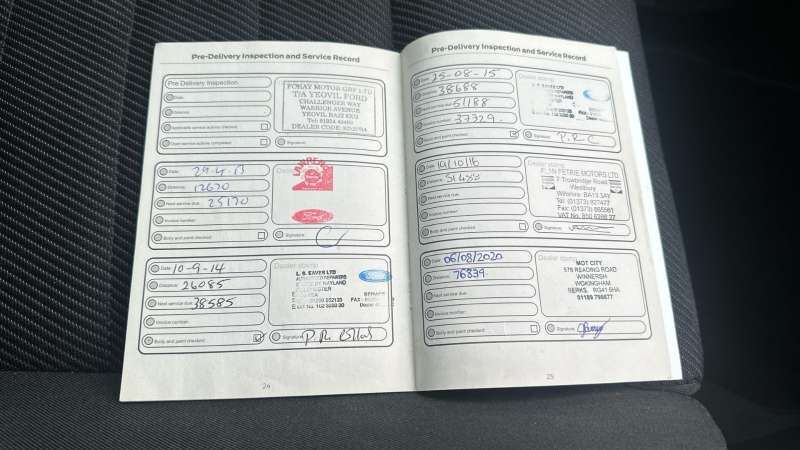 Pre-Delivery Inspection and Service Record
Pre Delivery Inspection
Date:
Distance:
FORAY MOTOR GRP LTD
T/A YEOVIL FORD
CHALLENGER WAY
WARRIOR AVENUE
YEOVIL
DEALER CODE:
Signature:
Date: 29-4-13
Distance: 12670
Next service due: 25170
Invoice number:
Body and paint checked:
Dealer stamp:
Ford
Signature:
Date: 10-9-14
Distance: 26085
Next service due: 38585
Invoice number:
Body and paint checked:
Dealer stamp:
L. S. EAVES LTD
AUTHORISED REPAIRERS
Signature:
24
Pre-Delivery Inspection and Service Record
Date: 25-08-15
Distance: 38688
Next service due: 51188
Invoice number: 37329
Body and paint checked:
Dealer stamp:
L. S. EAVES LTD
Signature: P.R.C
Date: 19/10/16
Distance:
Next service due:
Invoice number:
Body and paint checked:
Dealer stamp:
PETRIE MOTORS LTD
7 Trowbridge Road
Westbury
Wiltshire BA13 3AY
Tel: (01373) 827427
Fax: (01373)
VAT No.
Signature:
Date: 06/08/2020
Distance: 76839
Next service due:
Invoice number:
Body and paint checked:
Dealer stamp:
MOT CITY
576 READING ROAD
WINNERSH
WOKINGHAM
BERKS. RG41 5HA
01189 798877
Signature:
25